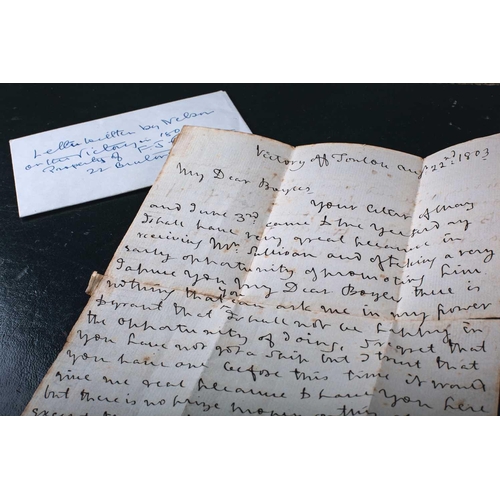 Letter written by Nelson
on the Victory in 180
Property of
22
Victory off Toulon Augt 22nd: 1803
My Dear Boyles
your letters of May
and June 3rd: came I
I shall have very great pleasure in
receiving Mr: Sullivan and of taking a very
early opportunity of promoting him
I assure you my Dear Boyles there is
nothing that ask me in my power
to grant that I shall not be happy in
the opportunity of doing. I regret that
you have not got a ship but I trust that
you have one before this time it would
give me real pleasure to have you here
but there is no prize money on this